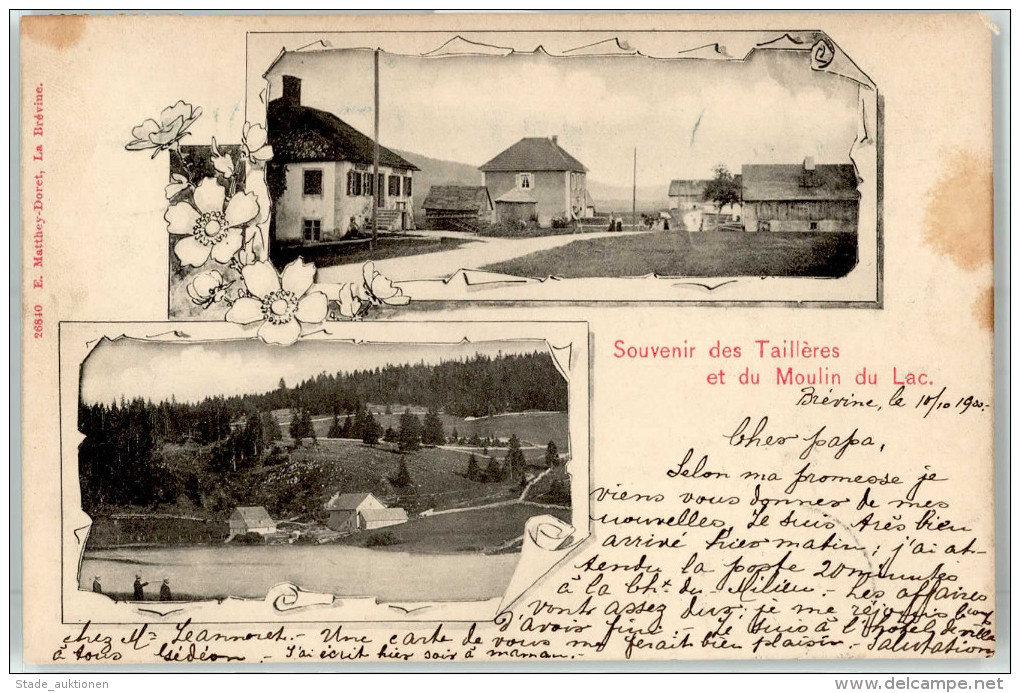 26840 E. Matthey-Doret, La Brévine.
Souvenir des Taillères
et du Moulin du Lac.
Brévine, le 10/10 1900.-
Cher papa,
Selon ma promesse je
viens vous donner de mes
nouvelles. Je suis très bien
arrivé hier matin; j'ai at-
tendu la poste 20 minutes
à la Ch.t du Milieu. Les affaires
vont assez dur; je me réjouis
d'avoir fini - Je suis à l'hôtel de ville
chez Mr Jeanneret.- Une carte de vous me ferait bien plaisir. Salutations
à tous Gédéon - J'ai écrit hier soir à maman.-
Stade_auktionen
www.delcampe.net